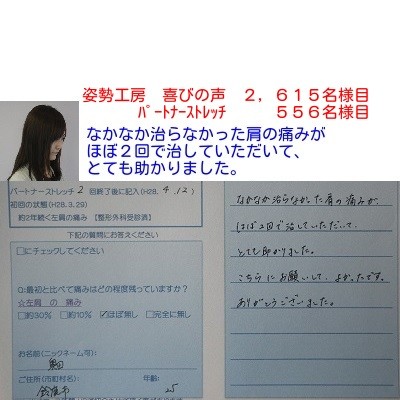 姿勢工房　喜びの声　２，６１５名様目
ﾊﾟｰﾄﾅｰｽﾄﾚｯﾁ　５５６名様目
なかなか治らなかった肩の痛みが
ほぼ２回で治していただいて、
とても助かりました。
パートナーストレッチ 2 回終了後に記入(H28. 4 .12)
初回の状態(H28.3.29)
約2年続く左肩の痛み 【整形外科受診済】
下記の質問にお答えください
□にチェックしてください
Q:最初と比べて痛みはどの程度残っていますか？
☆左肩 の 痛み
□約30％ □約10％ ☑ほぼ無し □完全に無し
お名前(ニックネーム可):
ご住所(市町村名): 年齢:
鈴鹿市 25
なかなか治らなかった肩の痛みが、
ほぼ2回で治していただいて、
とても助かりました。
こちらにお願いして、よかったです。
ありがとうございました。